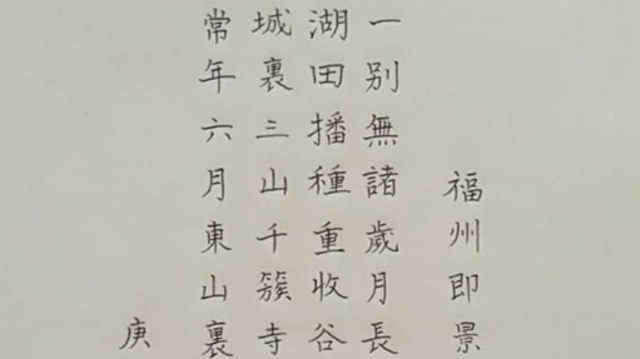 福州即景
一別無諸歲月長
湖田播種重收谷
城裏三山千簇寺
常年六月東山裏
庚